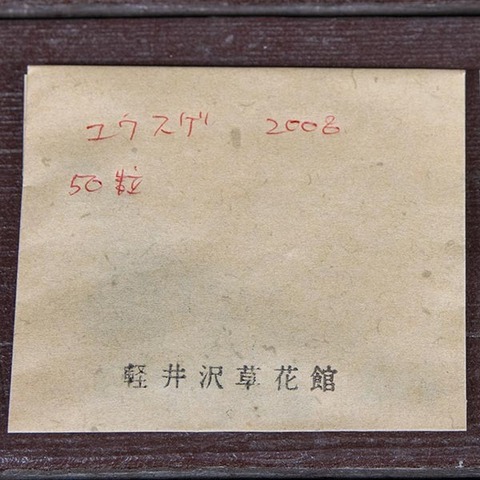 ユウスゲ 2008
50粒
軽井沢草花館